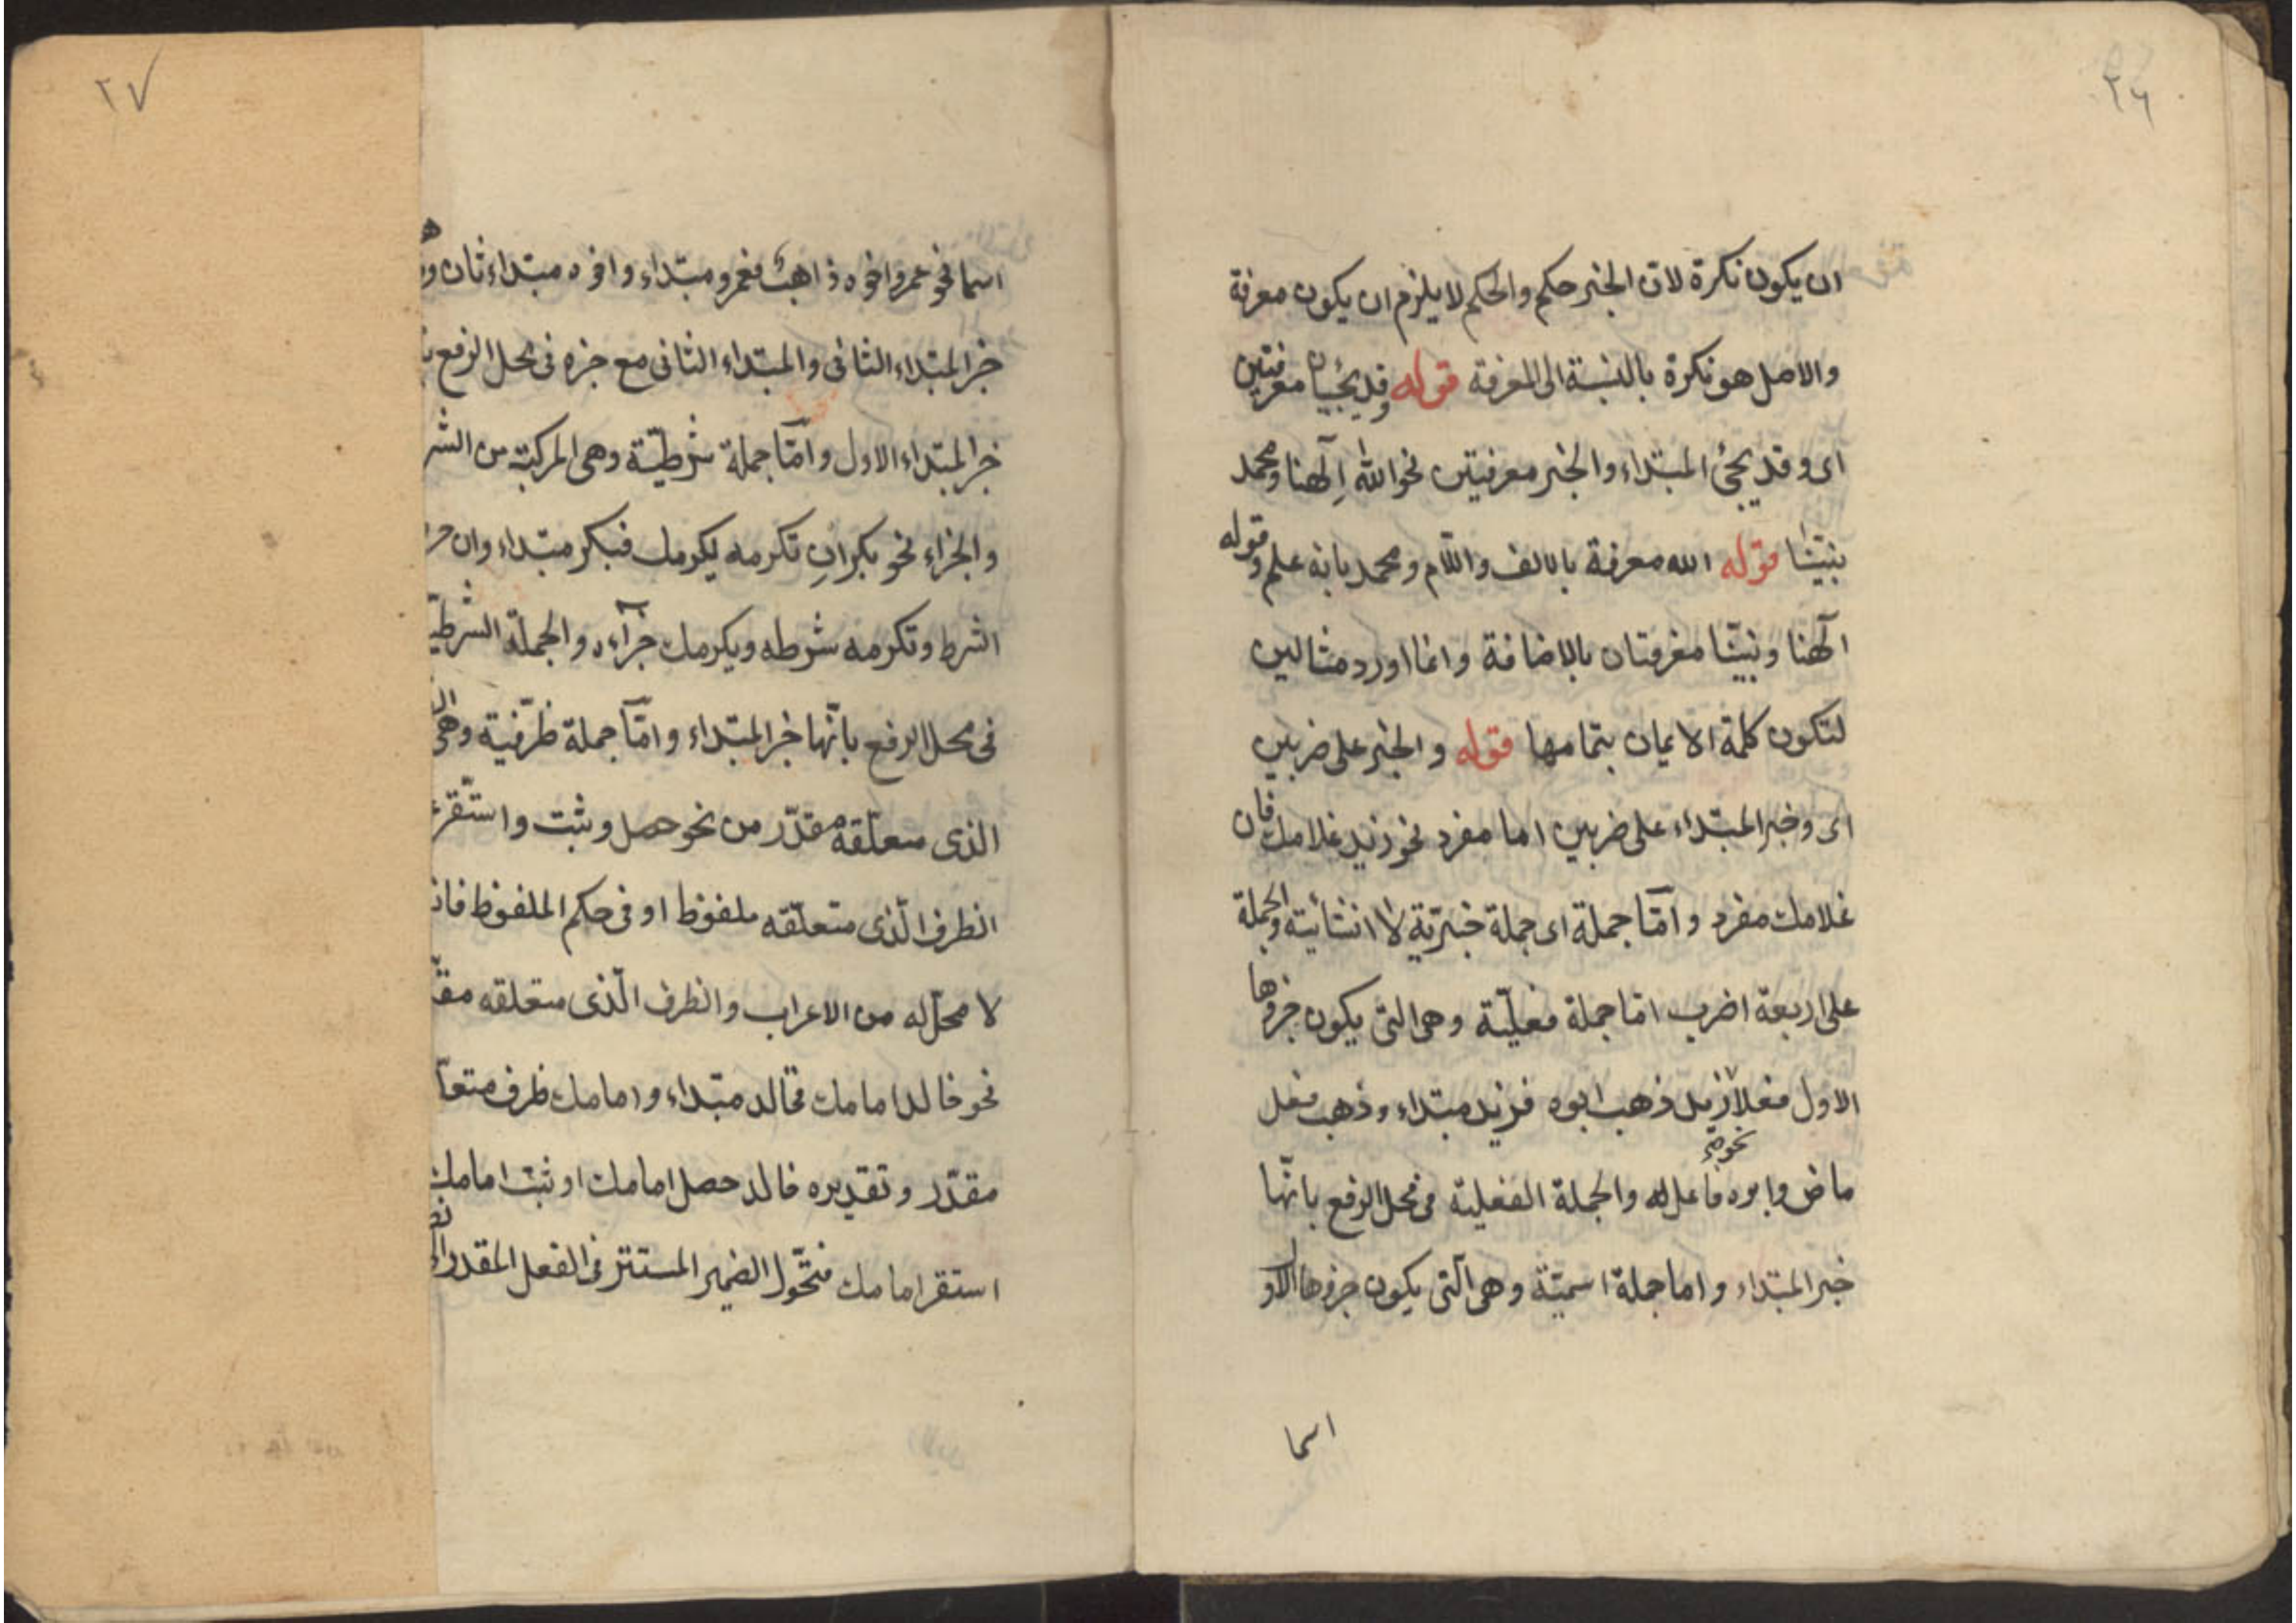 ٢٦
ان يكون نكرة لان الخبر حكم والحكم لا يلزم ان يكون معرفة
والاصل هو نكرة بالنسبة الى المعرفة قوله وقد يجيئان معرفتين
اى وقد يجئ المبتداء والخبر معرفتين نحو الله اِلٓهنا ومحمد
نبيّنا قوله الله معرفة بالالف واللّام ومحمد بانه علم وقوله
الٓهنا ونبيّنا معرفتان بالاضافة وانما اورد مثالين
لتكون كلمة الايمان بتمامها قوله والخبر على ضربين
اى وخبر المبتداء على ضربين اما مفرد نحو زيد غلامك فان
غلامك مفرد وامّا جملة اى جملة خبريّة لا انشائية والجملة
على اربعة اضرب امّا جملة فعليّة وهى التى يكون جزوها
الاول فعلا زيد ذهب ابوه فزيد مبتداء وذهب فعل
نحو
ماض وابوه فاعل له والجملة الفعلية فى محل الرفع بانّها
خبر المبتداء واما جملة اسميّة وهى الّتى يكون جزوها الاول
اسما
٢٧
اسما نحو عمرو اخوه ذاهب فعمرو مبتداء واخوه مبتداء ثان
خبر المبتداء الثانى والمبتداء الثانى مع خبره فى محل الرفع
خبر المبتداء الاول وامّا جملة شرطيّة وهى المركبة من الشر
والجزاء نحو بكر اِن تكرمه يكرمك فبكر مبتداء وان حر
الشرط وتكرمه شرطه ويكرمك جزآءه والجملة الشرطيّ
فى محل الرفع بانّها خبر المبتداء وامّا جملة ظرفية وهى
الذى متعلّقه مقدّر من نحو حصل وثبت واستقر
الظرف الّذى متعلّقه ملفوظ او فى حكم الملفوظ فانه
لا محلّ له من الاعراب والظرف الّذى متعلقه مقّ
نحو خالد امامك فخالد مبتداء وامامك ظرف متعلّ
مقدّر وتقديره خالد حصل امامك او ثبت امامك
استقر امامك فتحّول الضمير المستتر فى الفعل المقدر